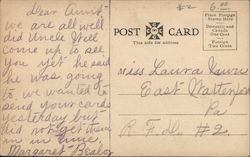 dear aunt
we are all well
did Uncle Will
come up to see
you yet he said
he was going
to, we wanted to
send your cards
yesterday but
did not get them
in in time.
Margaret
#2
POST CARD
This side for address
Place Postage
Stamp Here
Domestic and
Canada
One Cent
Foreign
Two Cents
Miss Laura
East
Pa
R.F.D. #2.